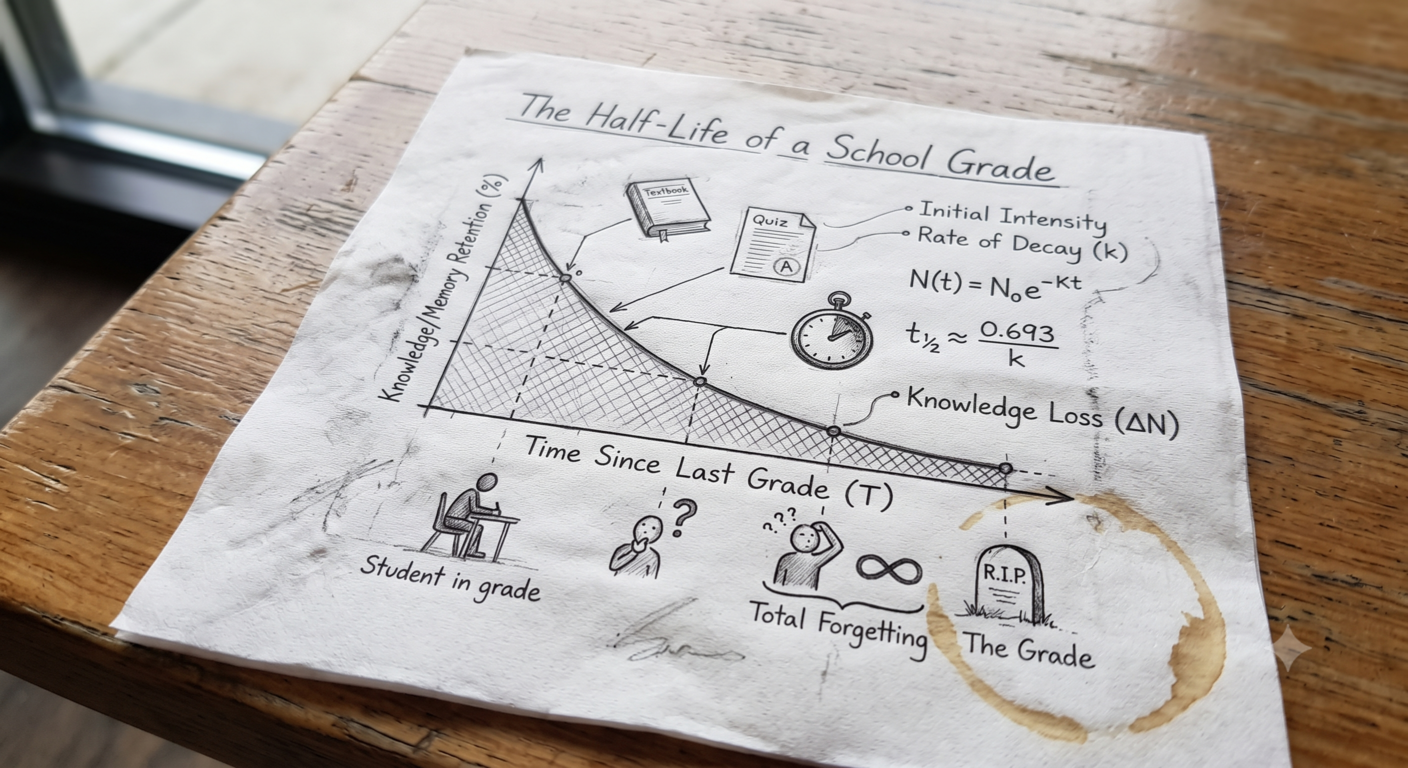 The Half-Life of a School Grade
Knowledge/Memory Retention (%)
Textbook
Quiz
A
Initial Intensity
Rate of Decay (k)
N(t) = N₀e⁻ᴷᵗ
t½ ≈ 0.693
k
Knowledge Loss (ΔN)
Time Since Last Grade (T)
?
???
∞
R.I.P.
Student in grade
Total Forgetting
The Grade